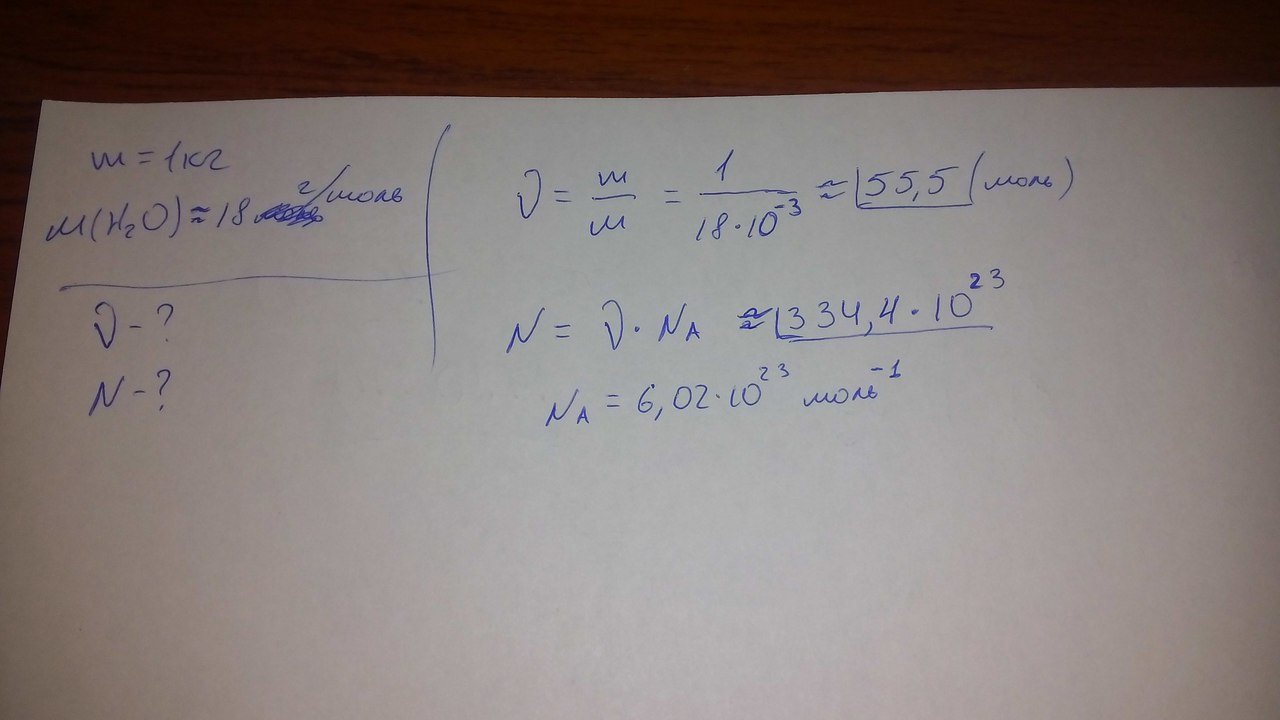 m = 1кг
M(H₂O) ≈ 18 г/моль
ν - ?
N - ?
ν = m/M = 1/(18·10⁻³) ≈ 55,5 (моль)
N = ν · N_A ≈ 334,4 · 10²³
N_A = 6,02·10²³ моль⁻¹